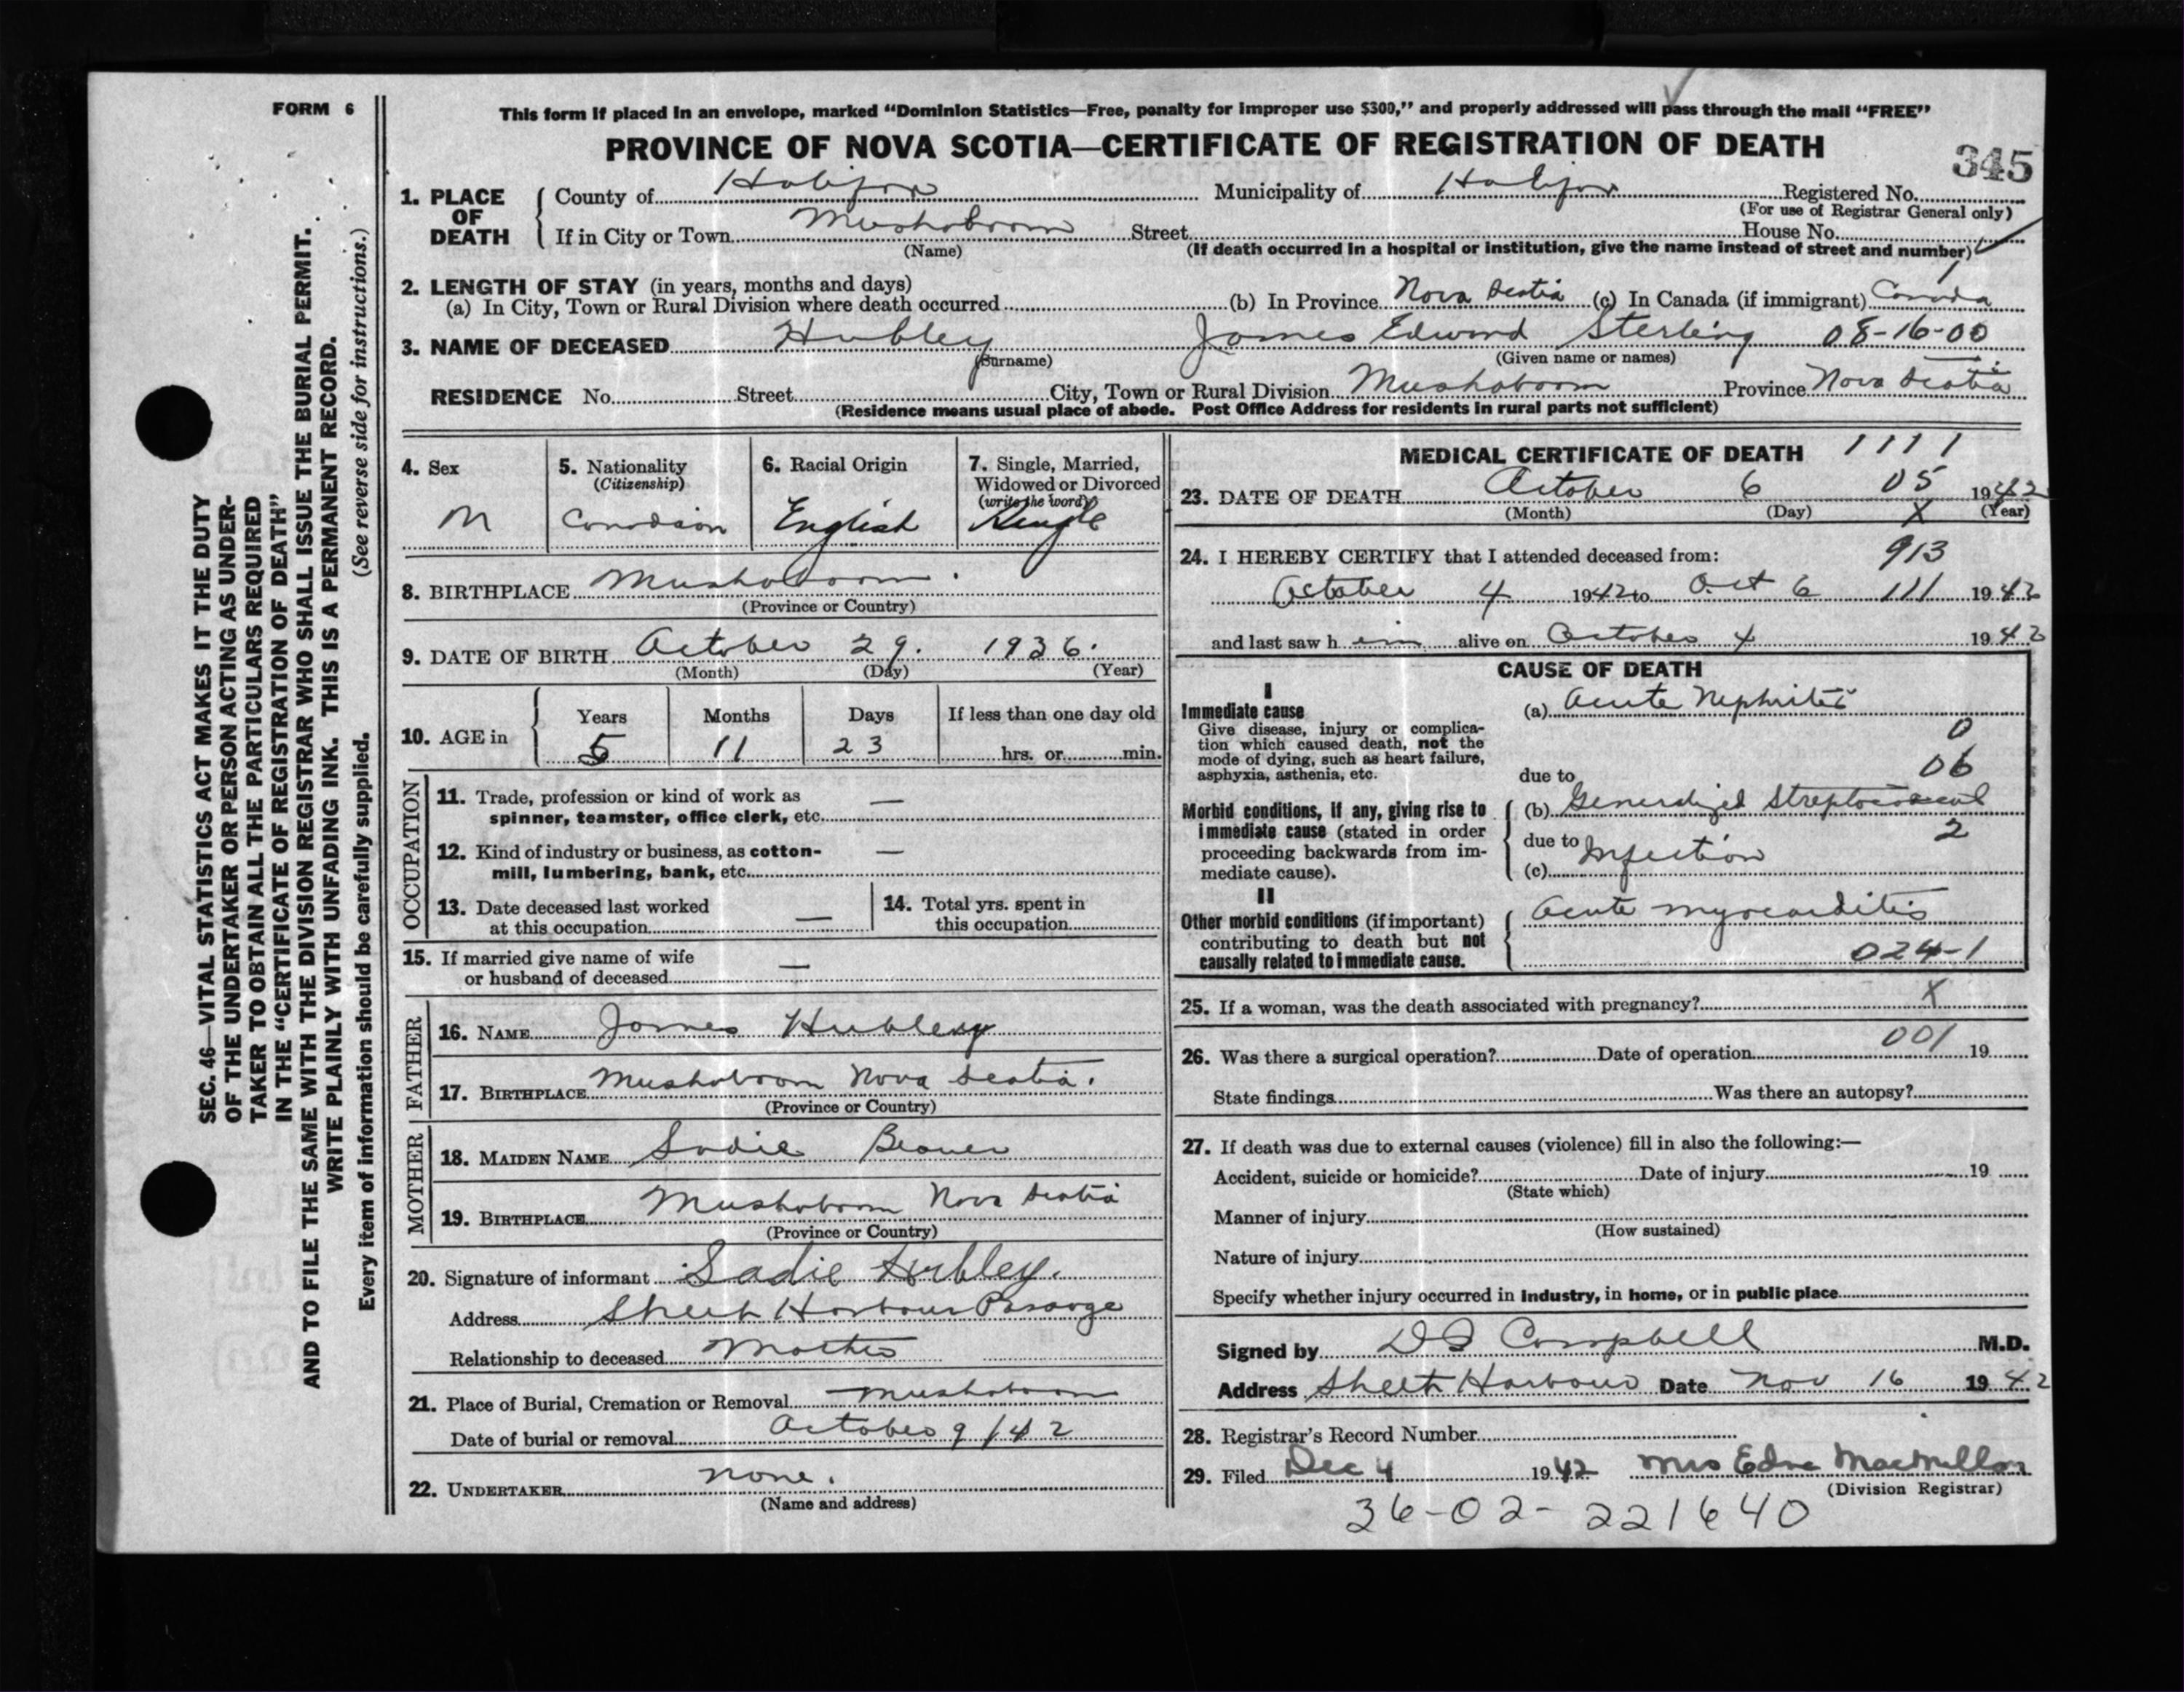 FORM 6
This form if placed in an envelope, marked "Dominion Statistics—Free, penalty for improper use $300," and properly addressed will pass through the mail "FREE"
PROVINCE OF NOVA SCOTIA—CERTIFICATE OF REGISTRATION OF DEATH
345
1. PLACE OF DEATH
County of Halifax Municipality of Halifax Registered No.
(For use of Registrar General only)
If in City or Town Mushaboom Street House No.
(Name) (If death occurred in a hospital or institution, give the name instead of street and number)
2. LENGTH OF STAY (in years, months and days)
(a) In City, Town or Rural Division where death occurred (b) In Province Nova Scotia (c) In Canada (if immigrant) Canada
3. NAME OF DECEASED Hubley James Edward Sterling 08-16-00
(Surname) (Given name or names)
RESIDENCE No. Street City, Town or Rural Division Mushaboom Province Nova Scotia
(Residence means usual place of abode. Post Office Address for residents in rural parts not sufficient)
4. Sex
M
5. Nationality
(Citizenship)
Canadian
6. Racial Origin
English
7. Single, Married,
Widowed or Divorced
(write the word)
Single
8. BIRTHPLACE Mushaboom
(Province or Country)
9. DATE OF BIRTH October 29. 1936.
(Month) (Day) (Year)
10. AGE in
Years Months Days If less than one day old
5 11 23 hrs. or min.
OCCUPATION
11. Trade, profession or kind of work as —
spinner, teamster, office clerk, etc.
12. Kind of industry or business, as cotton- —
mill, lumbering, bank, etc.
13. Date deceased last worked
at this occupation —
14. Total yrs. spent in
this occupation
15. If married give name of wife
or husband of deceased —
FATHER
16. NAME James Hubley
17. BIRTHPLACE Mushaboom Nova Scotia.
(Province or Country)
MOTHER
18. MAIDEN NAME Sadie Beaver
19. BIRTHPLACE Mushaboom Nova Scotia
(Province or Country)
20. Signature of informant Sadie Hubley.
Address Sheet Harbour Passage
Relationship to deceased Mother
21. Place of Burial, Cremation or Removal Mushaboom
Date of burial or removal October 9/42
22. UNDERTAKER none.
(Name and address)
MEDICAL CERTIFICATE OF DEATH 1111
23. DATE OF DEATH October 6 05 1942
(Month) (Day) X (Year)
24. I HEREBY CERTIFY that I attended deceased from: 913
October 4 1942 to Oct 6 111 1942
and last saw h im alive on October 4 1942
CAUSE OF DEATH
I
Immediate cause
Give disease, injury or complica-
tion which caused death, not the
mode of dying, such as heart failure,
asphyxia, asthenia, etc.
(a) Acute Nephritis
0
06
due to
Morbid conditions, if any, giving rise to
immediate cause (stated in order
proceeding backwards from im-
mediate cause).
(b) Generalized Streptococcal
2
due to Infection
(c)
II
Other morbid conditions (if important)
contributing to death but not
causally related to immediate cause.
Acute myocarditis
024-1
25. If a woman, was the death associated with pregnancy? X
26. Was there a surgical operation? Date of operation 001 19
State findings Was there an autopsy?
27. If death was due to external causes (violence) fill in also the following:—
Accident, suicide or homicide? Date of injury 19
(State which)
Manner of injury
(How sustained)
Nature of injury
Specify whether injury occurred in industry, in home, or in public place
Signed by Campbell M.D.
Address Sheet Harbour Date Nov 16 1942
28. Registrar's Record Number
29. Filed Dec 4 1942 Mrs Edna MacMillan
(Division Registrar)
36-02-221640
SEC. 46—VITAL STATISTICS ACT MAKES IT THE DUTY
OF THE UNDERTAKER OR PERSON ACTING AS UNDER-
TAKER TO OBTAIN ALL THE PARTICULARS REQUIRED
IN THE "CERTIFICATE OF REGISTRATION OF DEATH"
AND TO FILE THE SAME WITH THE DIVISION REGISTRAR WHO SHALL ISSUE THE BURIAL PERMIT.
WRITE PLAINLY WITH UNFADING INK. THIS IS A PERMANENT RECORD.
Every item of information should be carefully supplied. (See reverse side for instructions.)